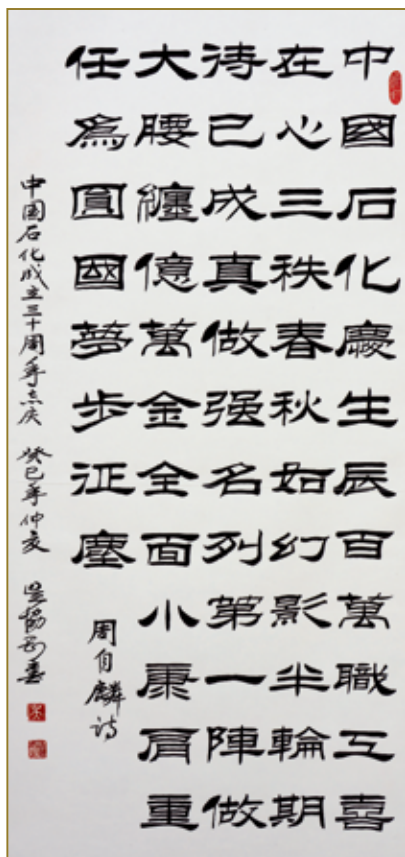 中國石化慶生辰百萬職工喜
在心三秩春秋如幻影半輪期
待已成真做强名列第一陣做
大腰纏億萬金全面小康肩重
任爲圓國夢步征塵
周自麟诗
中国石化成立三十周年志庆 癸巳年仲夏